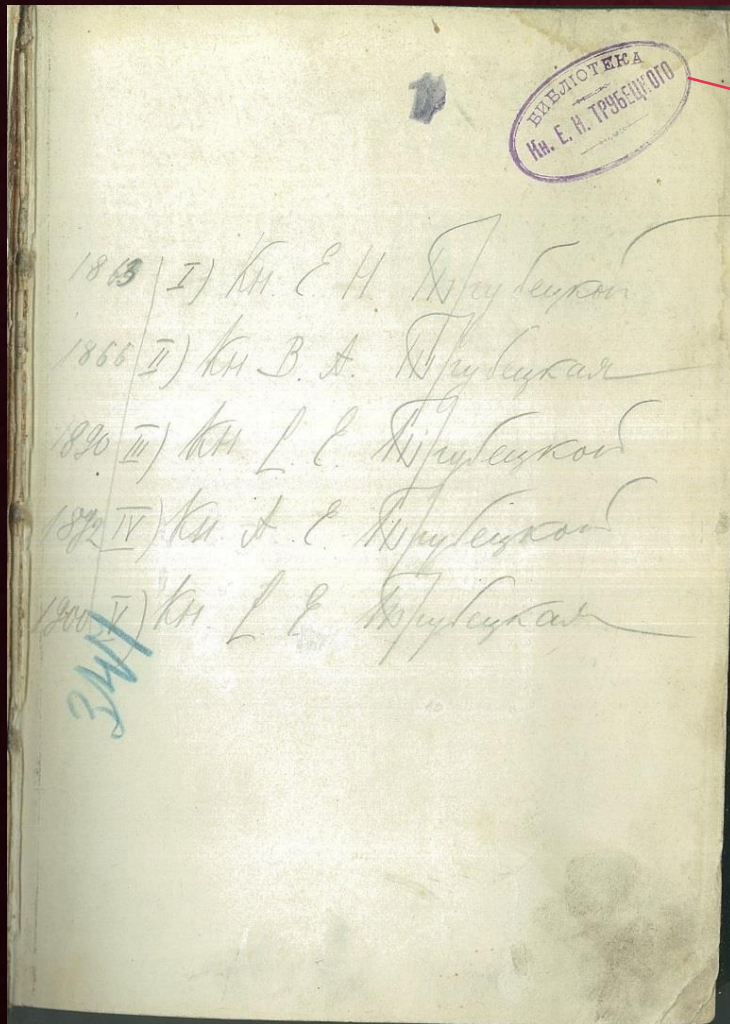 БИБЛІОТЕКА
Кн. Е. Н. ТРУБЕЦКОГО
1863 I) Кн. Е Н. Трубецкой
1866 II) Кн В. А. Трубецкая
1890 III) Кн. С. Е. Трубецкой
1892 IV) Кн. А. Е Трубецкой
1900 V) Кн. С. Е. Трубецкая
344